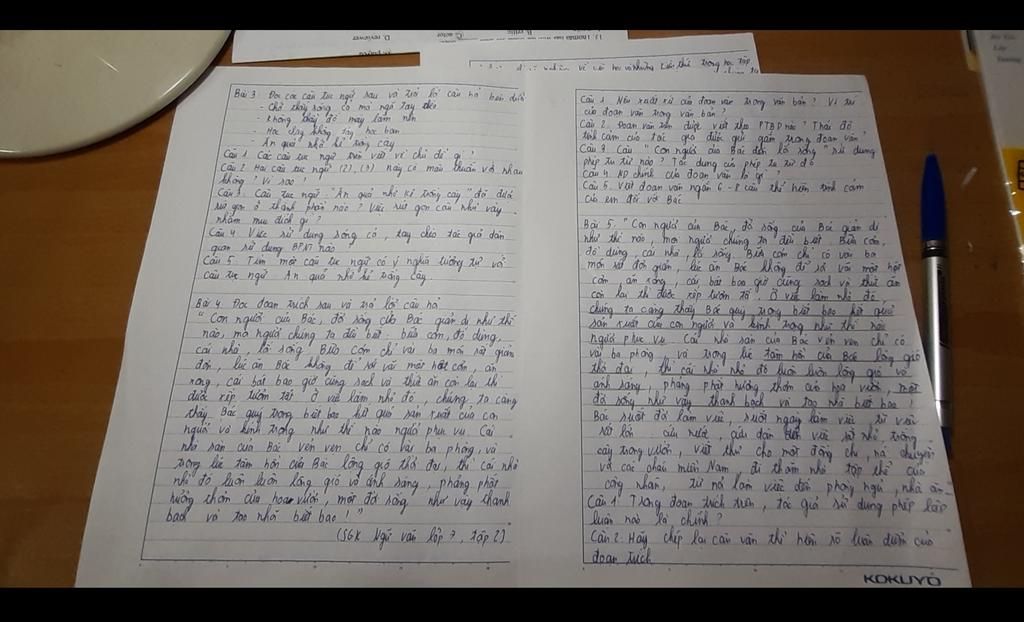 D. reviewer
C. actor
Bài 3: Đọc các câu tục ngữ sau và trả lời câu hỏi bên dưới
- Chớ thấy sóng cả mà ngã tay chèo
- Không thầy đố mày làm nên
- Học thầy không tày học bạn
- Ăn quả nhớ kẻ trồng cây
Câu 1. Các câu tục ngữ trên viết về chủ đề gì?
Câu 2. Hai câu tục ngữ (2), (3) này có mâu thuẫn với nhau
không? Vì sao?
Câu 3. Câu tục ngữ: "Ăn quả nhớ kẻ trồng cây" đã được
rút gọn ở thành phần nào? Việc rút gọn câu như vậy
nhằm mục đích gì?
Câu 4. Việc sử dụng sóng cả, tay chèo tác giả dân
gian sử dụng BPNT nào
Câu 5. Tìm một câu tục ngữ có ý nghĩa tương tự với
câu tục ngữ: Ăn quả nhớ kẻ trồng cây.
Bài 4. Đọc đoạn trích sau và trả lời câu hỏi
"Con người của Bác, đời sống của Bác giản dị như thế
nào, mọi người chúng ta đều biết: bữa cơm, đồ dùng,
cái nhà, lối sống. Bữa cơm chỉ vài ba món rất giản
đơn, lúc ăn Bác không để rơi vãi một hột cơm, ăn
xong, cái bát bao giờ cũng sạch và thức ăn còn lại thì
được xếp tươm tất. Ở việc làm nhỏ đó, chúng ta càng
thấy Bác quý trọng biết bao kết quả sản xuất của con
người và kính trọng như thế nào người phục vụ. Cái
nhà sàn của Bác vẻn vẹn chỉ có vài ba phòng, và
trong lúc tâm hồn của Bác lộng gió thời đại, thì cái nhà
nhỏ đó luôn luôn lộng gió và ánh sáng, phảng phất
hương thơm của hoa vườn, một đời sống như vậy thanh
bạch và tao nhã biết bao!"
(SGK Ngữ văn lớp 7, tập 2)
Câu 1. Nêu xuất xứ của đoạn văn trong văn bản? Vị trí
của đoạn văn trong văn bản?
Câu 2. Đoạn văn trên được viết theo PTBĐ nào? Thái độ
tình cảm của tác giả được gửi gắm trong đoạn văn
Câu 3. Câu "Con người của Bác đến lối sống" sử dụng
phép tu từ nào? Tác dụng của phép tu từ đó
Câu 4. ND chính của đoạn văn là gì?
Câu 5. Viết đoạn văn ngắn 6-8 câu thể hiện tình cảm
của em đối với Bác
Bài 5. "Con người của Bác, đời sống của Bác giản dị
như thế nào, mọi người chúng ta đều biết: Bữa cơm,
đồ dùng, cái nhà, lối sống. Bữa cơm chỉ có vài ba
món rất đơn giản, lúc ăn Bác không để rơi vãi một hột
cơm, ăn xong, cái bát bao giờ cũng sạch và thức ăn
còn lại thì được xếp tươm tất. Ở việc làm nhỏ đó,
chúng ta càng thấy Bác quý trọng biết bao kết quả
sản xuất của con người và kính trọng như thế nào
người phục vụ. Cái nhà sàn của Bác vẻn vẹn chỉ có
vài ba phòng và trong lúc tâm hồn của Bác lộng gió
thời đại, thì cái nhà nhỏ đó luôn luôn lộng gió và
ánh sáng, phảng phất hương thơm của hoa vườn, một
đời sống như vậy thanh bạch và tao nhã biết bao
Bác suốt đời làm việc, suốt ngày làm việc, từ việc
rất lớn: cứu nước, cứu dân đến việc rất nhỏ, trồng
cây trong vườn, viết thư cho một đồng chí, nói chuyện
với các cháu miền Nam, đi thăm nhà tập thể của
công nhân, từ nơi làm việc đến phòng ngủ, nhà ăn.
Câu 1. Trong đoạn trích trên, tác giả sử dụng phép lập
luận nào là chính?
Câu 2. Hãy chép lại câu văn thể hiện rõ luận điểm của
đoạn trích
KOKUYO